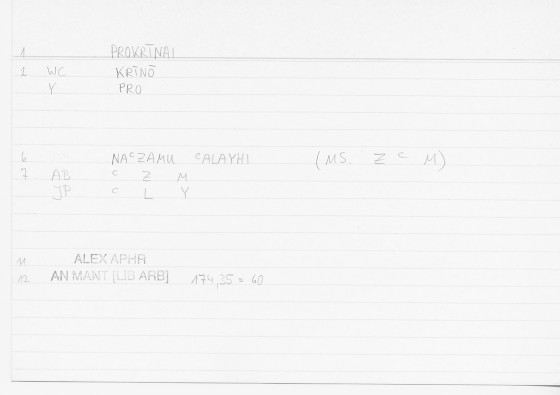 1 PROKRĪNAI
2 WC KRĪNŌ
Y PRO
6 NAᶜZAMU ᶜALAYHI (MS. Z ᶜ M)
7 AB ᶜ Z M
JP ᶜ L Y
11 ALEX APHR
12 AN MANT [LIB ARB] 174,35 = 60